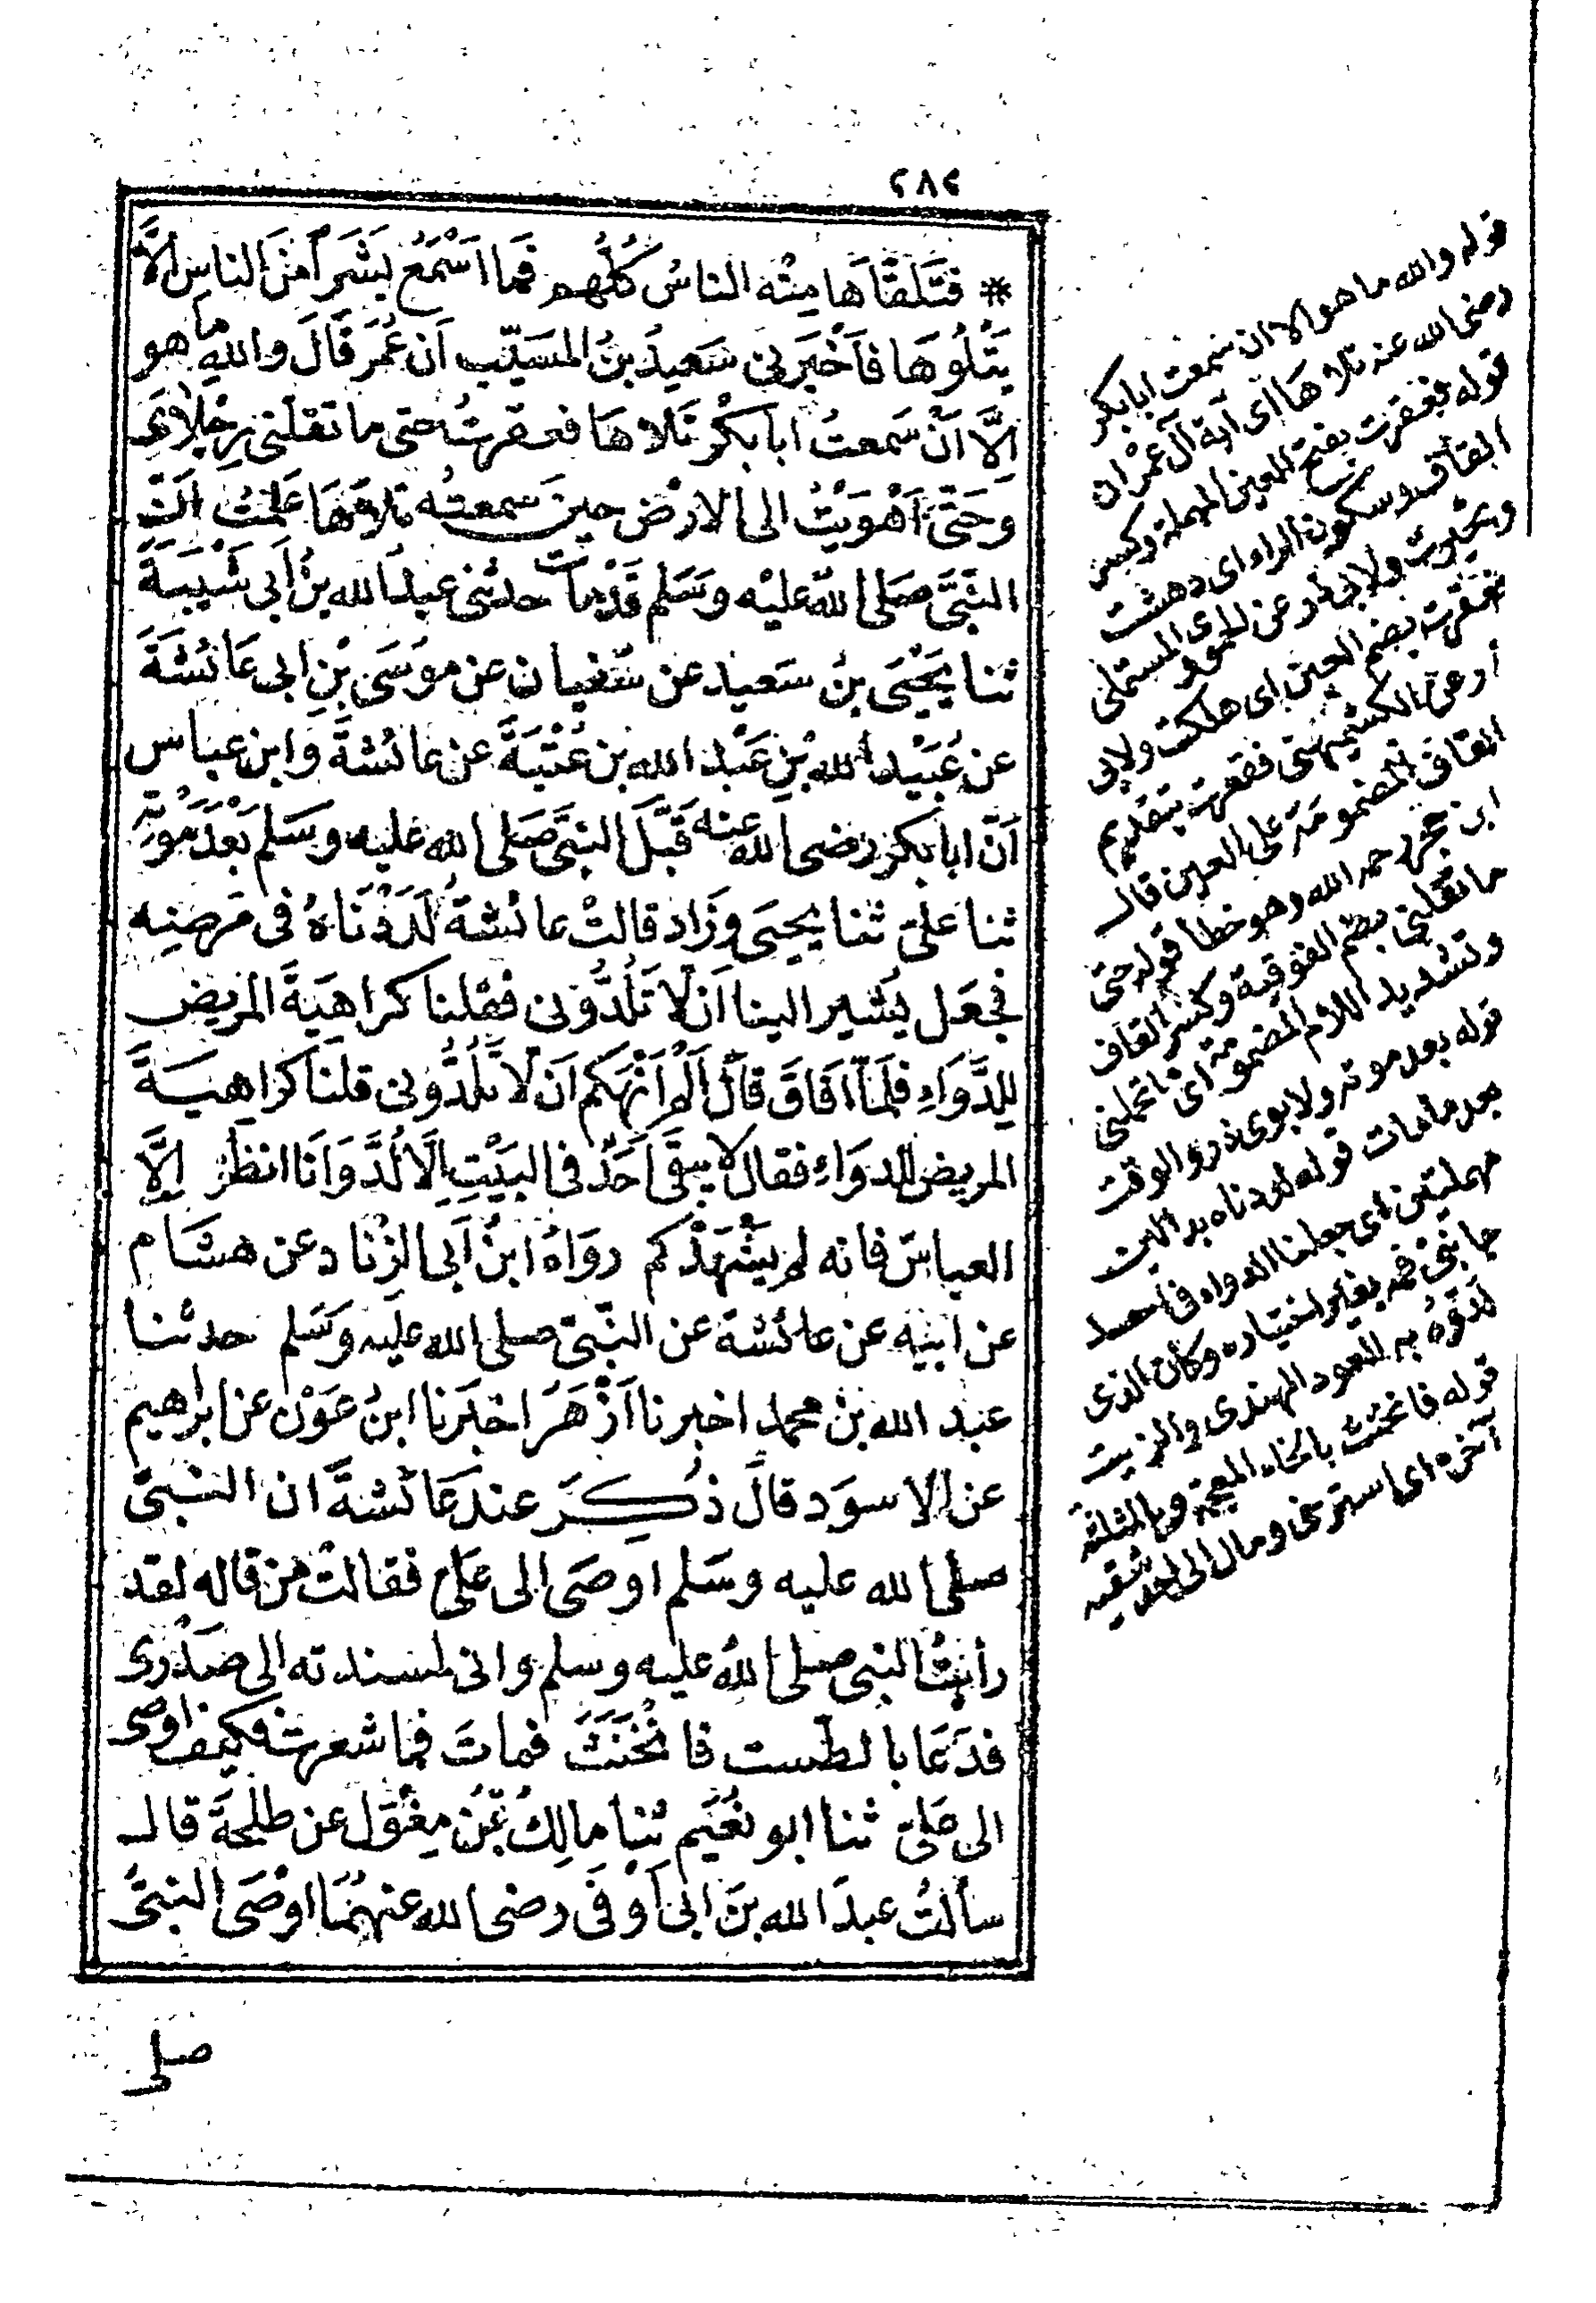 ٢٨٢
* فَتَلَقَّاهَا مِنْه الناسُ كُلُّهم فَمَا اَسْمَعُ بَشَرًا مِنَ الناسِ الاَّ
يَتْلُوهَا فاَخْبَرَنى سَعِيدُ بنُ المسَيّب اَن عُمَرَ قَالَ واللهِ ما هو
اِلَّا اَنْ سَمعتُ ابابَكْرٍ تَلاهَا فعقرتُ حتى ما تقلّنى رِجْلاىَ
وَحَتَّى اَهْوَيْتُ الى الارْضِ حِينَ سَمعتُه تلاهَا عَلِمْتُ اَنَّ
النَبىَّ صَلى اللهُ عليْه وَسَلم قَدْ مات حدثنى عبد الله بنُ اَبى شَيْبَةَ
ثنا يَحْيَى بنُ سَعيد عن سُفيان عن موسَى بْنِ ابى عَائشَةَ
عن عُبَيْد الله بْنِ عَبْد الله بن عُتْبَةَ عن عائشةَ وَابن عباس
اَنَّ ابا بكر رضى الله عنه قَبَّلَ النبىَّ صَلى الله عليه وسَلم بَعْدَ مَوْتِهِ
ثنا عَلىّ ثنا يحيى وَزَاد قالتْ عائشةُ لَدَدْنَاهُ فى مَرضِه
فجعَل يُشير الينا اَنْ لَا تَلُدُّونى فقلنا كراهيَةَ المريض
لِلدَّوَاءِ فلمَّا اَفَاقَ قالَ اَلَمْ اَنْهَكم ان لَّا تَلُدُّونى قلنا كراهِيَةَ
المريض للدوَاءِ فقال لا يبقَى اَحَدٌ فى البَيْتِ اِلَّا لُدَّ وَاَنَا انظُرُ اِلَّا
العباسَ فانه لم يَشْهَدْكم روَاهُ ابنُ اَبى الزِنَاد عن هشَام
عن ابيْه عن عائشة عن النّبىّ صلى الله عليه وَسَلم حدثنا
عبد الله بن محمد اخبرنا اَزْهَرُ اخبَرنا ابنُ عَوْن عن ابراهيم
عن الاسوَد قالَ ذُكِرَ عندَ عَائشةَ ان النبىَّ
صلى الله عليه وسَلم اَوصَى الى عَلىّ فقالتْ مَن قاله لقد
رأيتُ النبى صلى اللهُ عليه وسلم وانى لمسندته الى صَدْرى
فدَعَا بالطست فانْخَنَثَ فماتَ فما شعرتُ فكيف اوصى
الى عَلىّ ثنا ابو نُعَيم ثنا مالِكُ بْنُ مِغْوَل عن طلحةَ قالـ
سألتُ عبدَ الله بنَ ابى اَوْفَى رضى الله عنهُمَا اَوْصَى النبىُّ
صلى
قوله والله ما هو الا ان سمعت ابابكر
رضى الله عنه تلاها اى آية آل عمران
قوله فعقرت بفتح العين المهملة وكسر
القاف وسكون الراء اى دهشت
وتحيرت ولابى ذر عن الحموى والمستملى
فعقرت بضم العين اى هلكت ولابى
ذر عن الكشميهنى فقعرت بتقديم
القاف المضمومة على العين قالـ
ابن حجر رحمه الله وهو خطا قوله حتى
ما تقلنى بضم الفوقية وكسر القاف
وتشديد اللام المضمومة اى ما تحملنى
قوله بعد موته ولابوى ذر والوقت
بعد ما مات قوله لددناه بدالين
مهملتين اى جعلنا الدواء فى احد
جانبى فمه بغير اختياره وكان الذى
لدّوه به العود الهندى والزيت
قوله فانخنث بالخاء المعجمة وبالمثلثة
آخره اى استرخى ومال الى احد شقيه